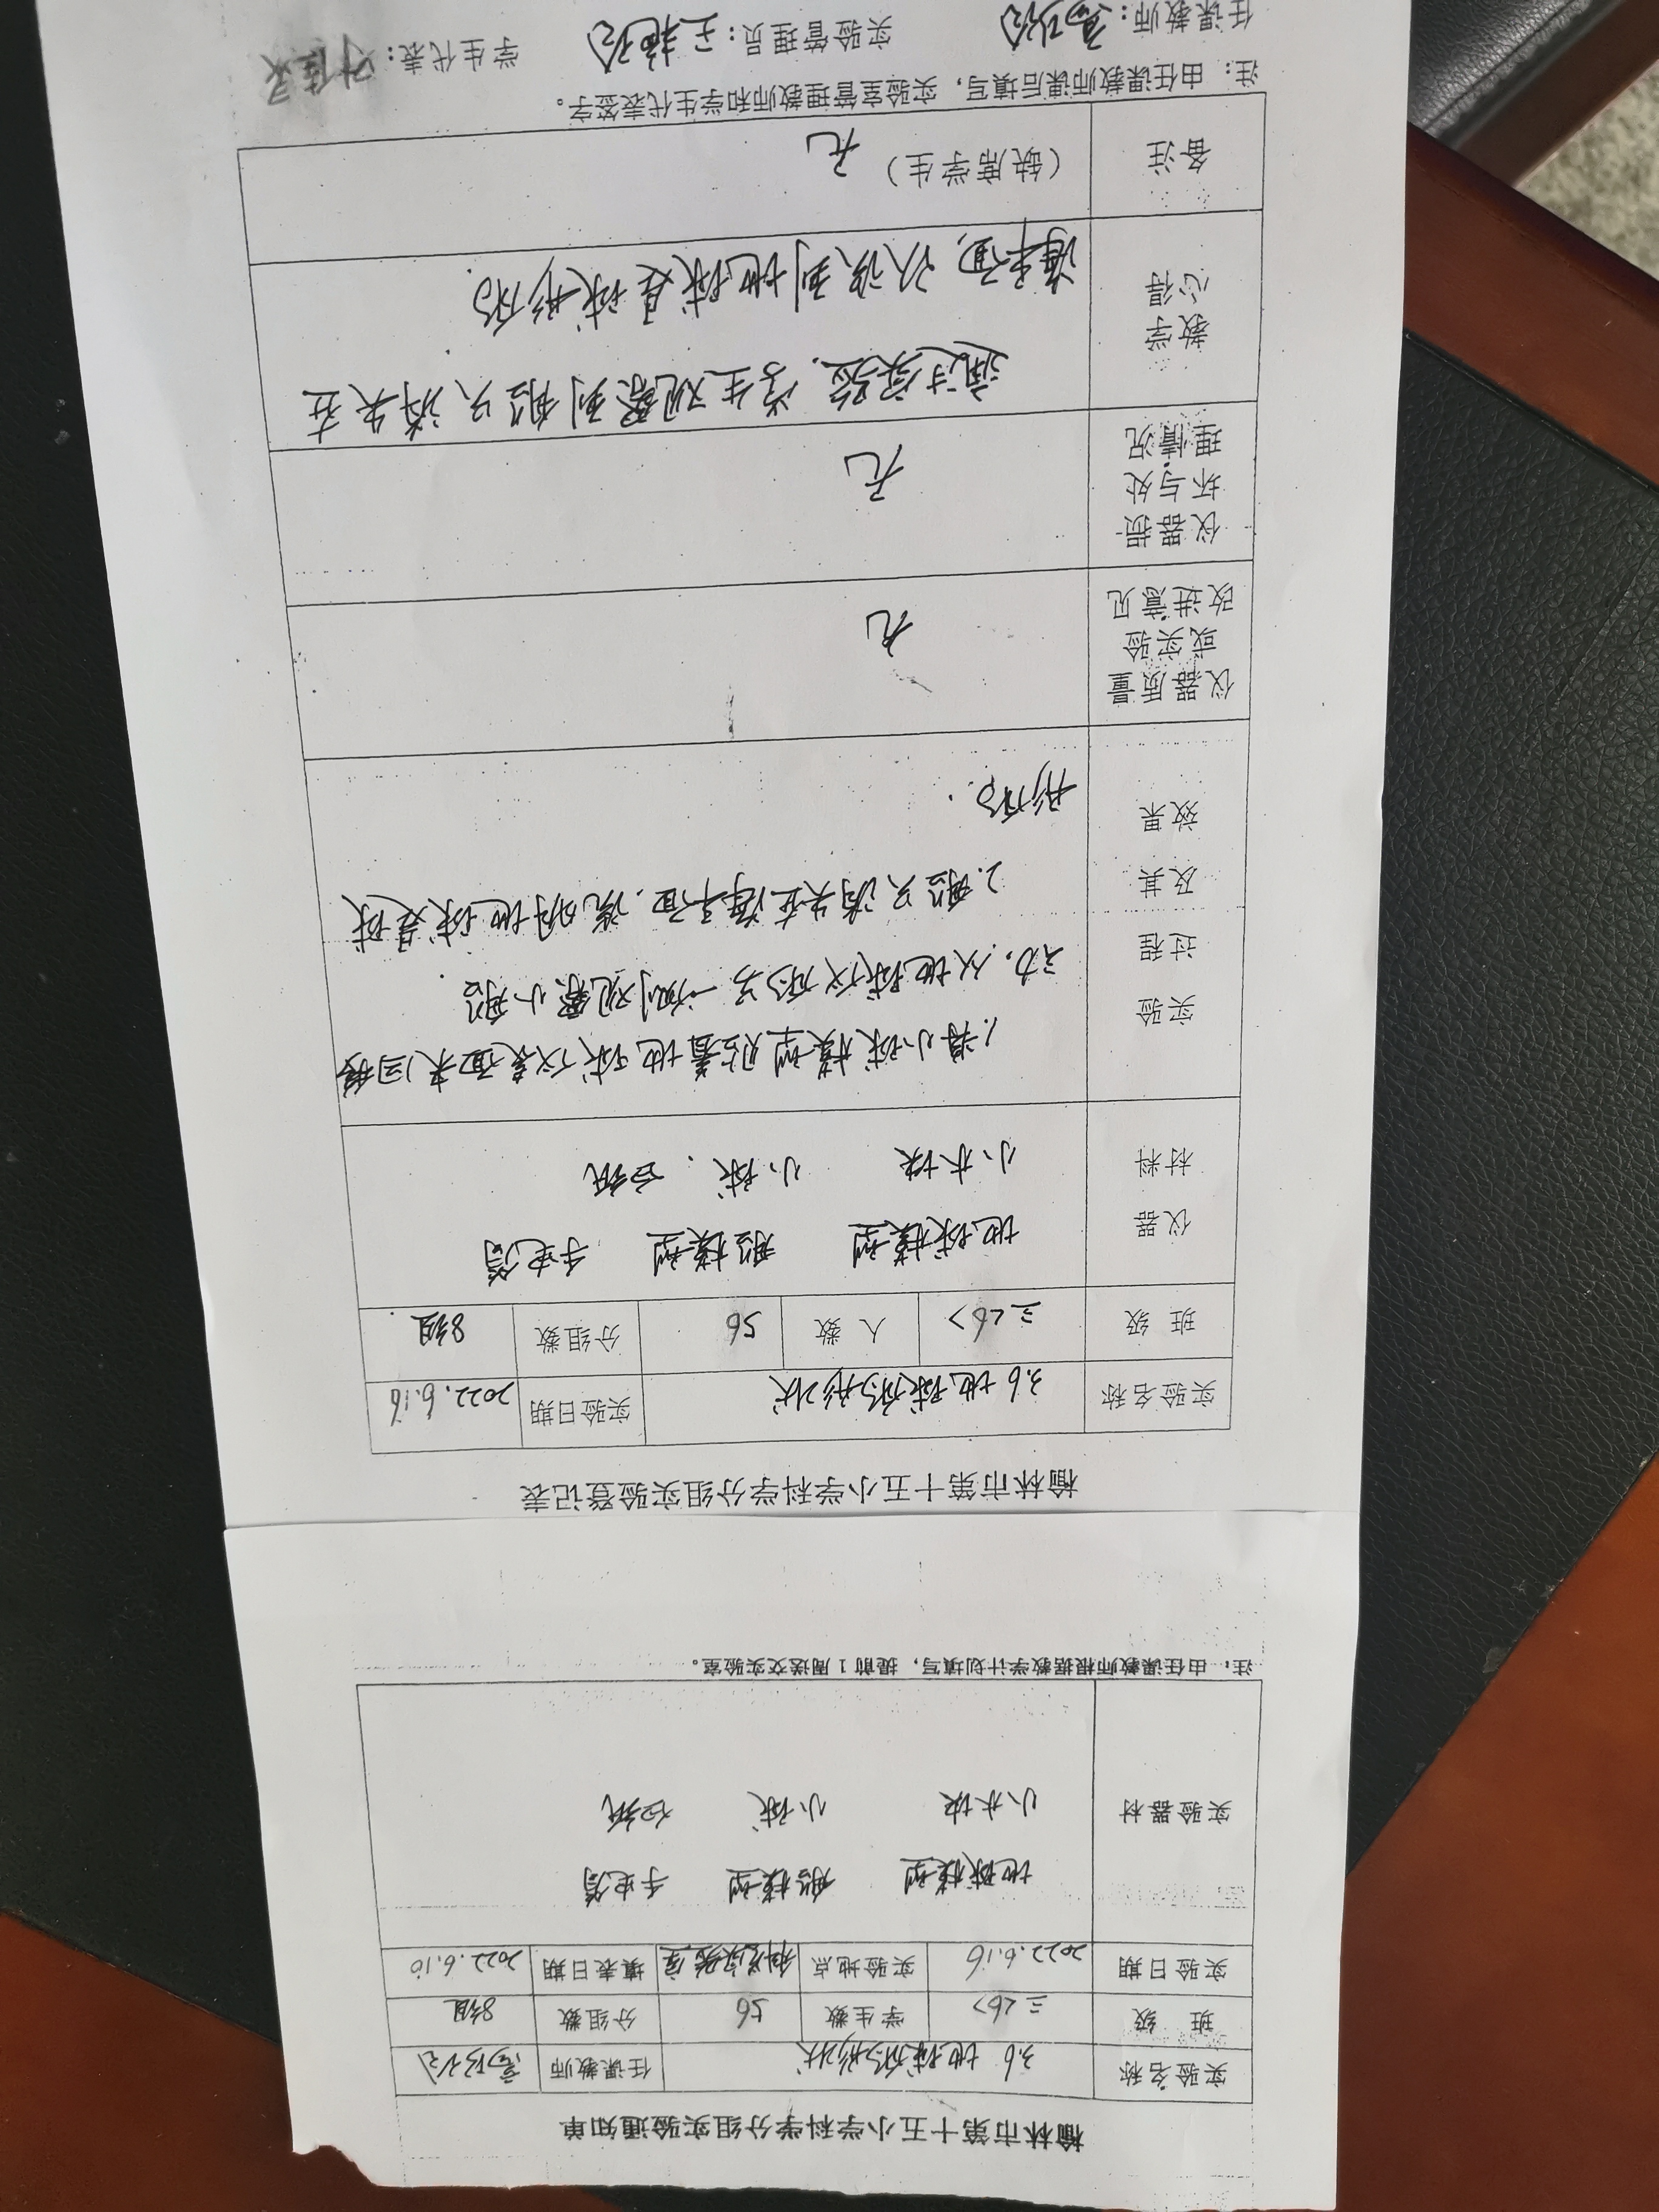 榆林市第十五小学科学分组实验通知单
实验名称 3.6 地球的形状 任课教师
班 级 三<6> 学生数 56 分组数 8组
实验日期 2022.6.16 实验地点 科学实验室 填表日期 2022.6.10
实验器材 地球模型 船模型 手电筒
小木块 小球 白纸
注：由任课教师根据教学计划填写，提前1周送交实验室。
榆林市第十五小学科学分组实验登记表
实验名称 3.6 地球的形状 实验日期 2022.6.16
班 级 三<6> 人 数 56 分组数 8组
仪器 地球模型 船模型 手电筒
材料 小木块 小球. 白纸
实验 1.将小球模型贴着地球仪表面来回移
过程 动，从地球仪的另一侧观察小船.
及其 2.船只消失在海平面，说明地球是球
效果 形的.
仪器质量
或实验 无
改进意见
仪器损
坏与处 无
理情况
教学 通过实验，学生观察到船只消失在
心得 海平面，认识到地球是球形的.
备注 （缺席学生） 无
注：由任课教师课后填写，实验室管理教师和学生代表签字。
任课教师： 实验管理员： 学生代表：